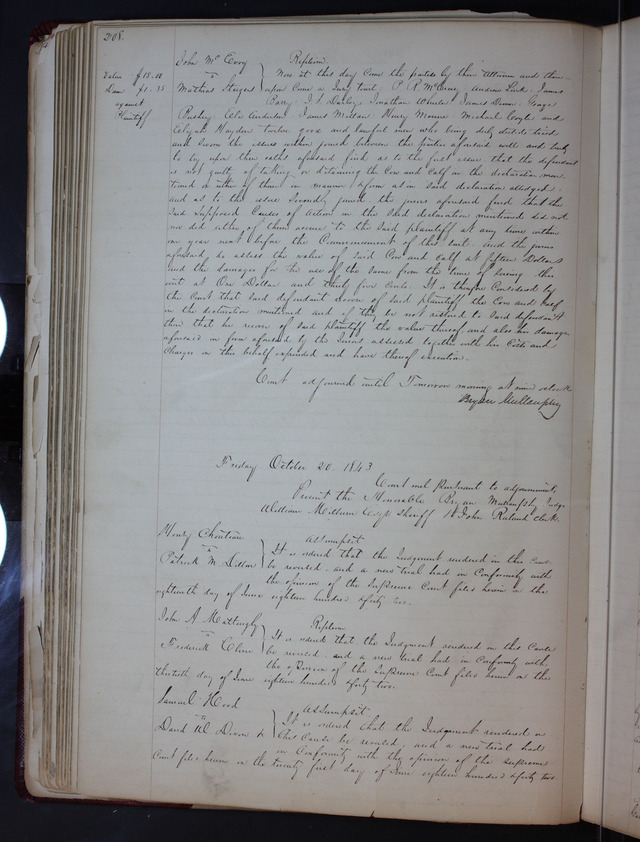 208.
John McEvoy
vs
Mathias Steyers
Replevin
Value $15.00
Dam $1.35
against
Plaintiff
Now at this day Come the parties by their Attornies and there
upon Come a Jury to wit, P R McCreery, Andrew Park, James
Parry, J. S. Darley, Jonathan Wheeler, James Dunn, George
Pushey, Cols Anderson, James Mellan, Henry Monroe, Michael Coyle and
Elijah Hayden twelve good and lawful men who being duly elected tried
and Sworn the issues within joined between the parties aforesaid well and truly
to try upon their oaths aforesaid find as to the first issue that the defendant
is not guilty of taking or detaining the Cow and Calf in the declaration men-
tioned or either of them in manner & form as in Said declaration alledged,
and as to the issue Secondly joined the jurors aforesaid find that the
Said Supposed Causes of Action in the Said declaration mentioned did not
nor did either of them accrue to the Said plaintiff at any time within
one year next before the Commencement of this suit. and the jurors
aforesaid do assess the value of Said Cow and Calf at fifteen Dollars
and the damages for the use of the Same from the time of Suing this
writ at One Dollar and thirty five Cents. It is therefore Considered by
the Court that Said defendant recover of Said plaintiff the Cow and Calf
in the declaration mentioned and if the be not returned to Said defendant
then that he recover of Said plaintiff the value thereof and also his damages
aforesaid in form aforesaid by the Jurors assessed together with his Costs and
Charges in this behalf expended and have thereof execution.
Court adjourned until Tomorrow morning at nine oclock
Bryan Mullanphy
Friday October 20. 1843
Court met Pursuant to adjournment,
Present the Honorable Bryan Mullanphy, Judge
William Milburn Esqr Sheriff & John Ruland clerk.
Henry Chouteau
vs
Patrick M. Dillon
Assumpsit
It is ordered that the Judgment rendered in this Cause
be reversed, and a new trial had in Conformity with
the opinion of the Supreme Court filed herein on the
eighteenth day of June eighteen hundred & forty two.
John A. Mattingly
vs
Frederick
Replevin
It is ordered that the Judgment rendered in this Cause
be reversed, and a new trial had in Conformity with
the opinion of the Supreme Court filed herein on the
thirtieth day of June eighteen hundred & forty two.
Samuel Head
vs
David W. Dixon &
Assumpsit
It is ordered that the Judgment rendered in
this Cause be reversed, and a new trial had
in Conformity with the opinion of the Supreme
Court filed herein on the twenty first day of June eighteen hundred & forty two